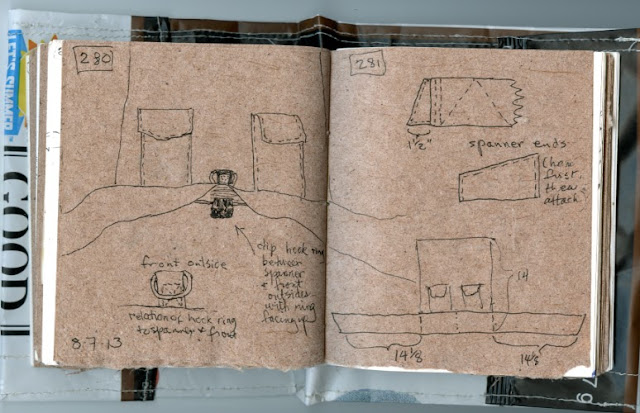 LET'S SIMMER
GOOD
230
front outside
relation of hook ring
to spanner & front
8.7.13
clip hook ring
between
spanner
& front
outsides
with ring
facing up
281
1 1/2"
spanner ends
first
then
attach
14
14 1/8
14 1/8